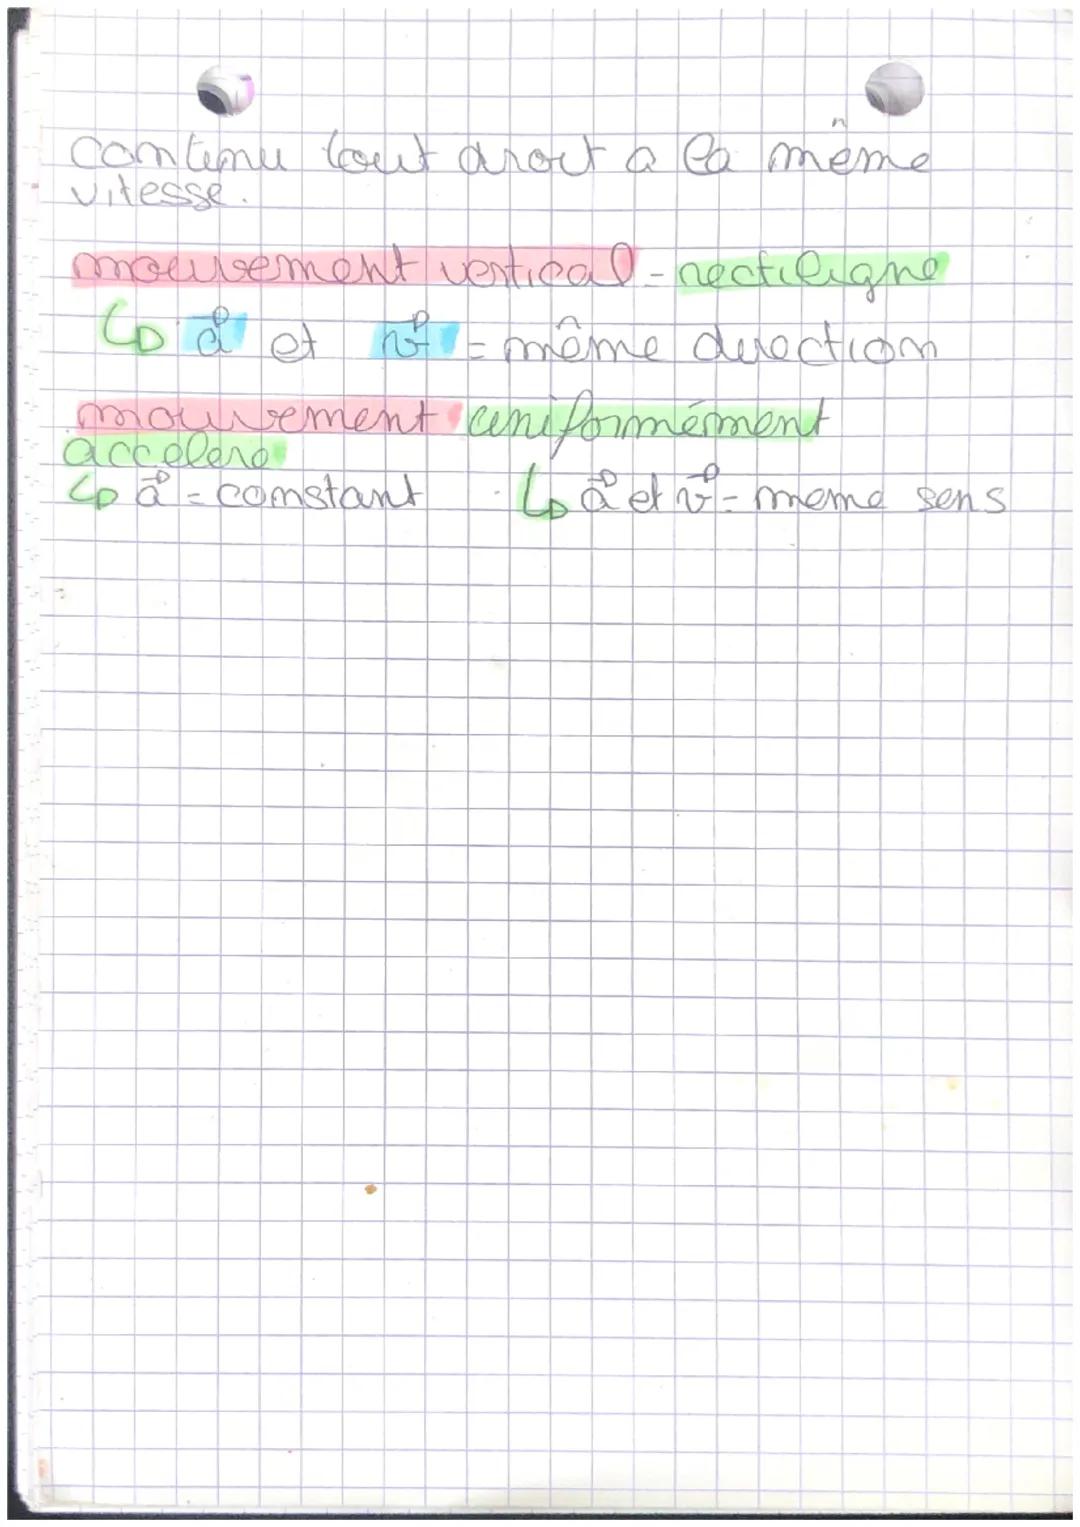 contenu tout droit a la même
vitesse.
mouvement vertical - rectiligne
↳ a⃗ et v⃗ = même direction
mouvement uniformément
accelere
↳ a⃗ = constant ↳ a⃗ et v⃗ = meme sens